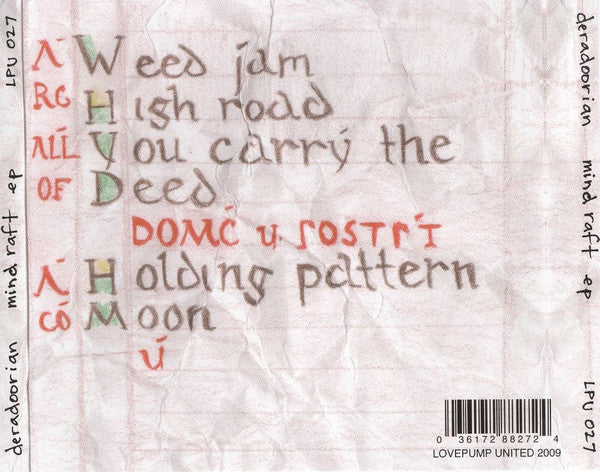 deradoorian mind raft ep LPU 027
Λ́ Weed jam
RG High road
You carrý the
OF Deed
DOMĆ u
Λ́ Holding pattern
CÓ Moon
Ú
0 36172 88272 4
LOVEPUMP UNITED 2009
deradoorian mind raft ep LPU 027